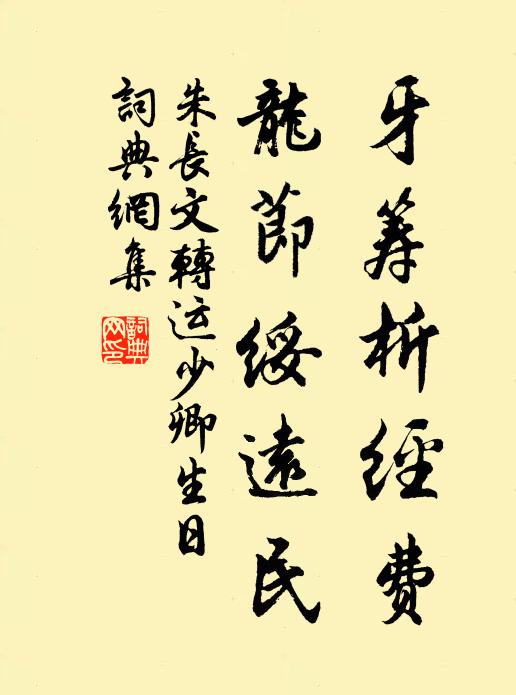 牙筭析經費
龍節綏遠民
朱長文轉运少卿生日
詞典網集
詞典网印